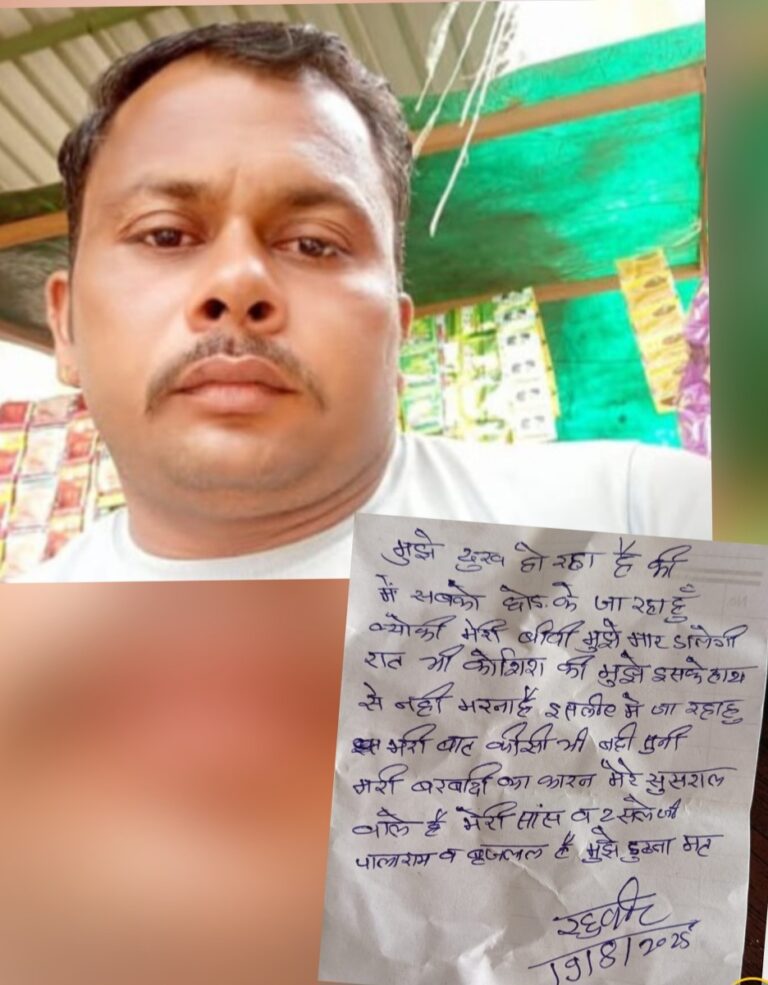 मुझे दुख हो रहा है की
में सबको छोड के जा रहा हूँ
क्योकी मेरी बीवी मुझे मार डालेगी
रात भी कोशिश की मुझे इसके हाथ
से नही मरना है इसलीए मे जा रहा हु
मेरी बात कीसी भी नही सुनी
मेरी बरबादि का कारन मेरे सुसराल
वाले है मेरी सांस व 2 साले जी
पालाराम व बृजलाल है मुझे ढुढना मत
रघुवीर
19/8/2025